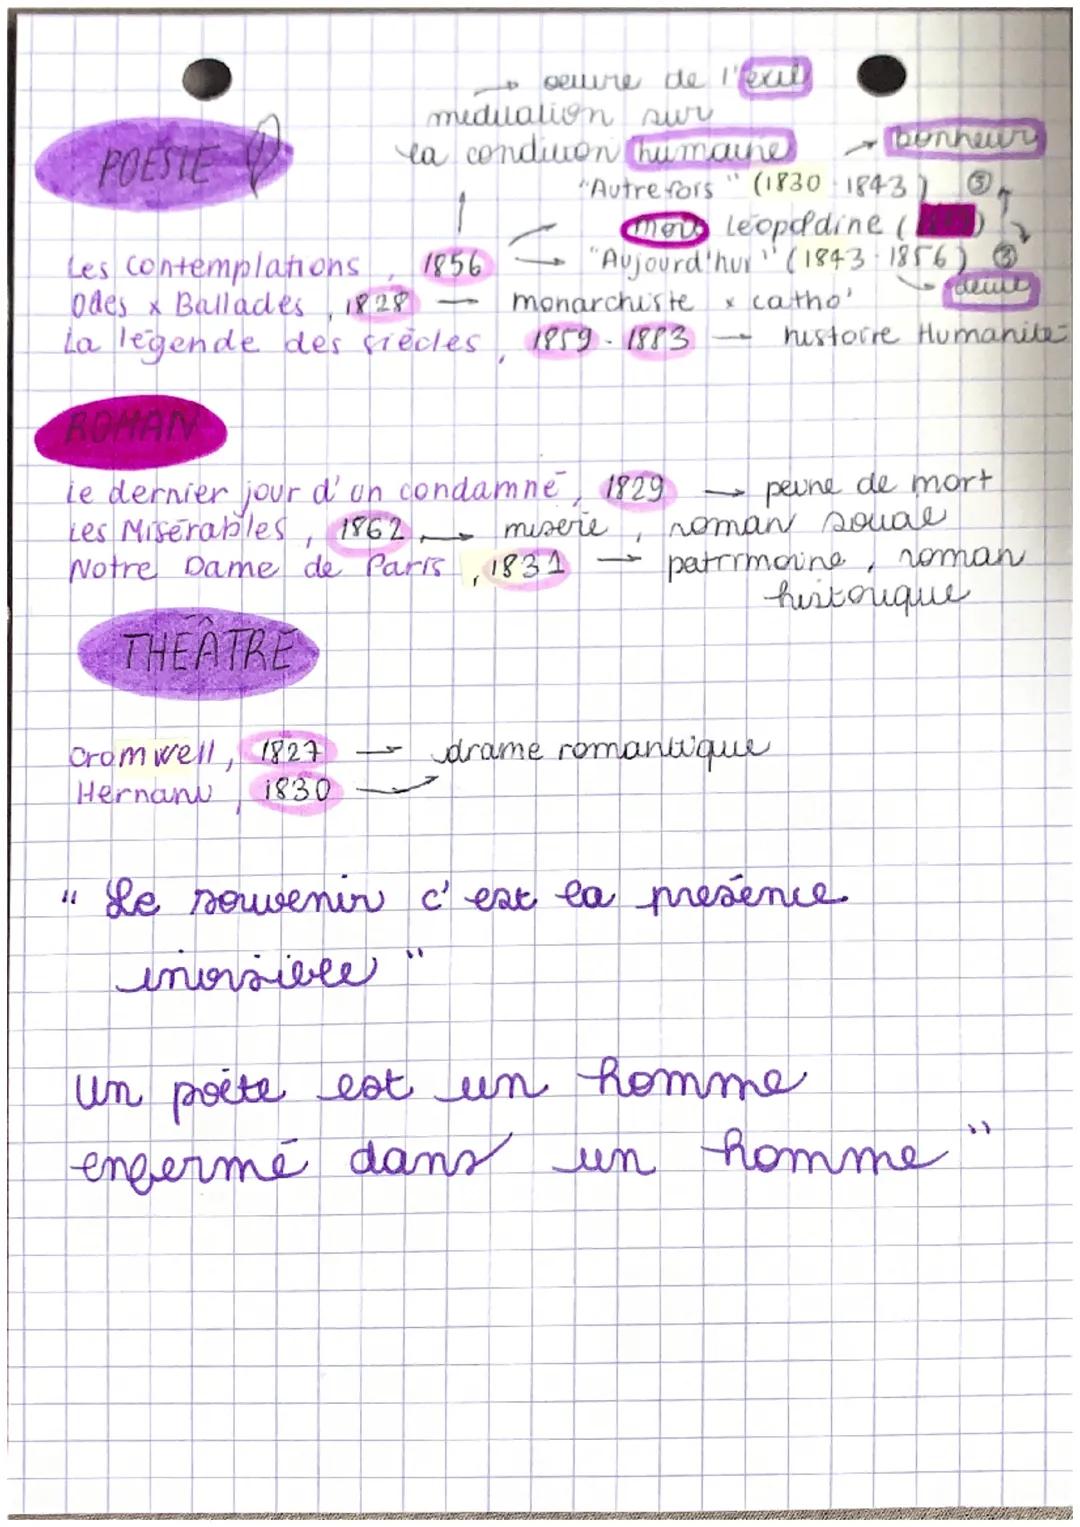 → oeuvre de l'exil
meditation sur
la condition humaine → bonheur
POÉSIE
"Autrefois" (1830 - 1843) ③
mort Léopoldine ( )
Les contemplations, 1856 → "Aujourd'hui" (1843 - 1856) ③
→ deuil
Odes x Ballades, 1828 → monarchiste x catho'
La légende des siècles, 1859 - 1883 → histoire Humanité
ROMAN
Le dernier jour d'un condamné, 1829 → peine de mort
Les Misérables, 1862 → misère, roman social
Notre Dame de Paris, 1831 → patrimoine, roman
historique
THÉÂTRE
Cromwell, 1827 → drame romantique
Hernani, 1830 →
" Le souvenir c'est la présence
invisible "
Un poète est un homme
enfermé dans un homme "